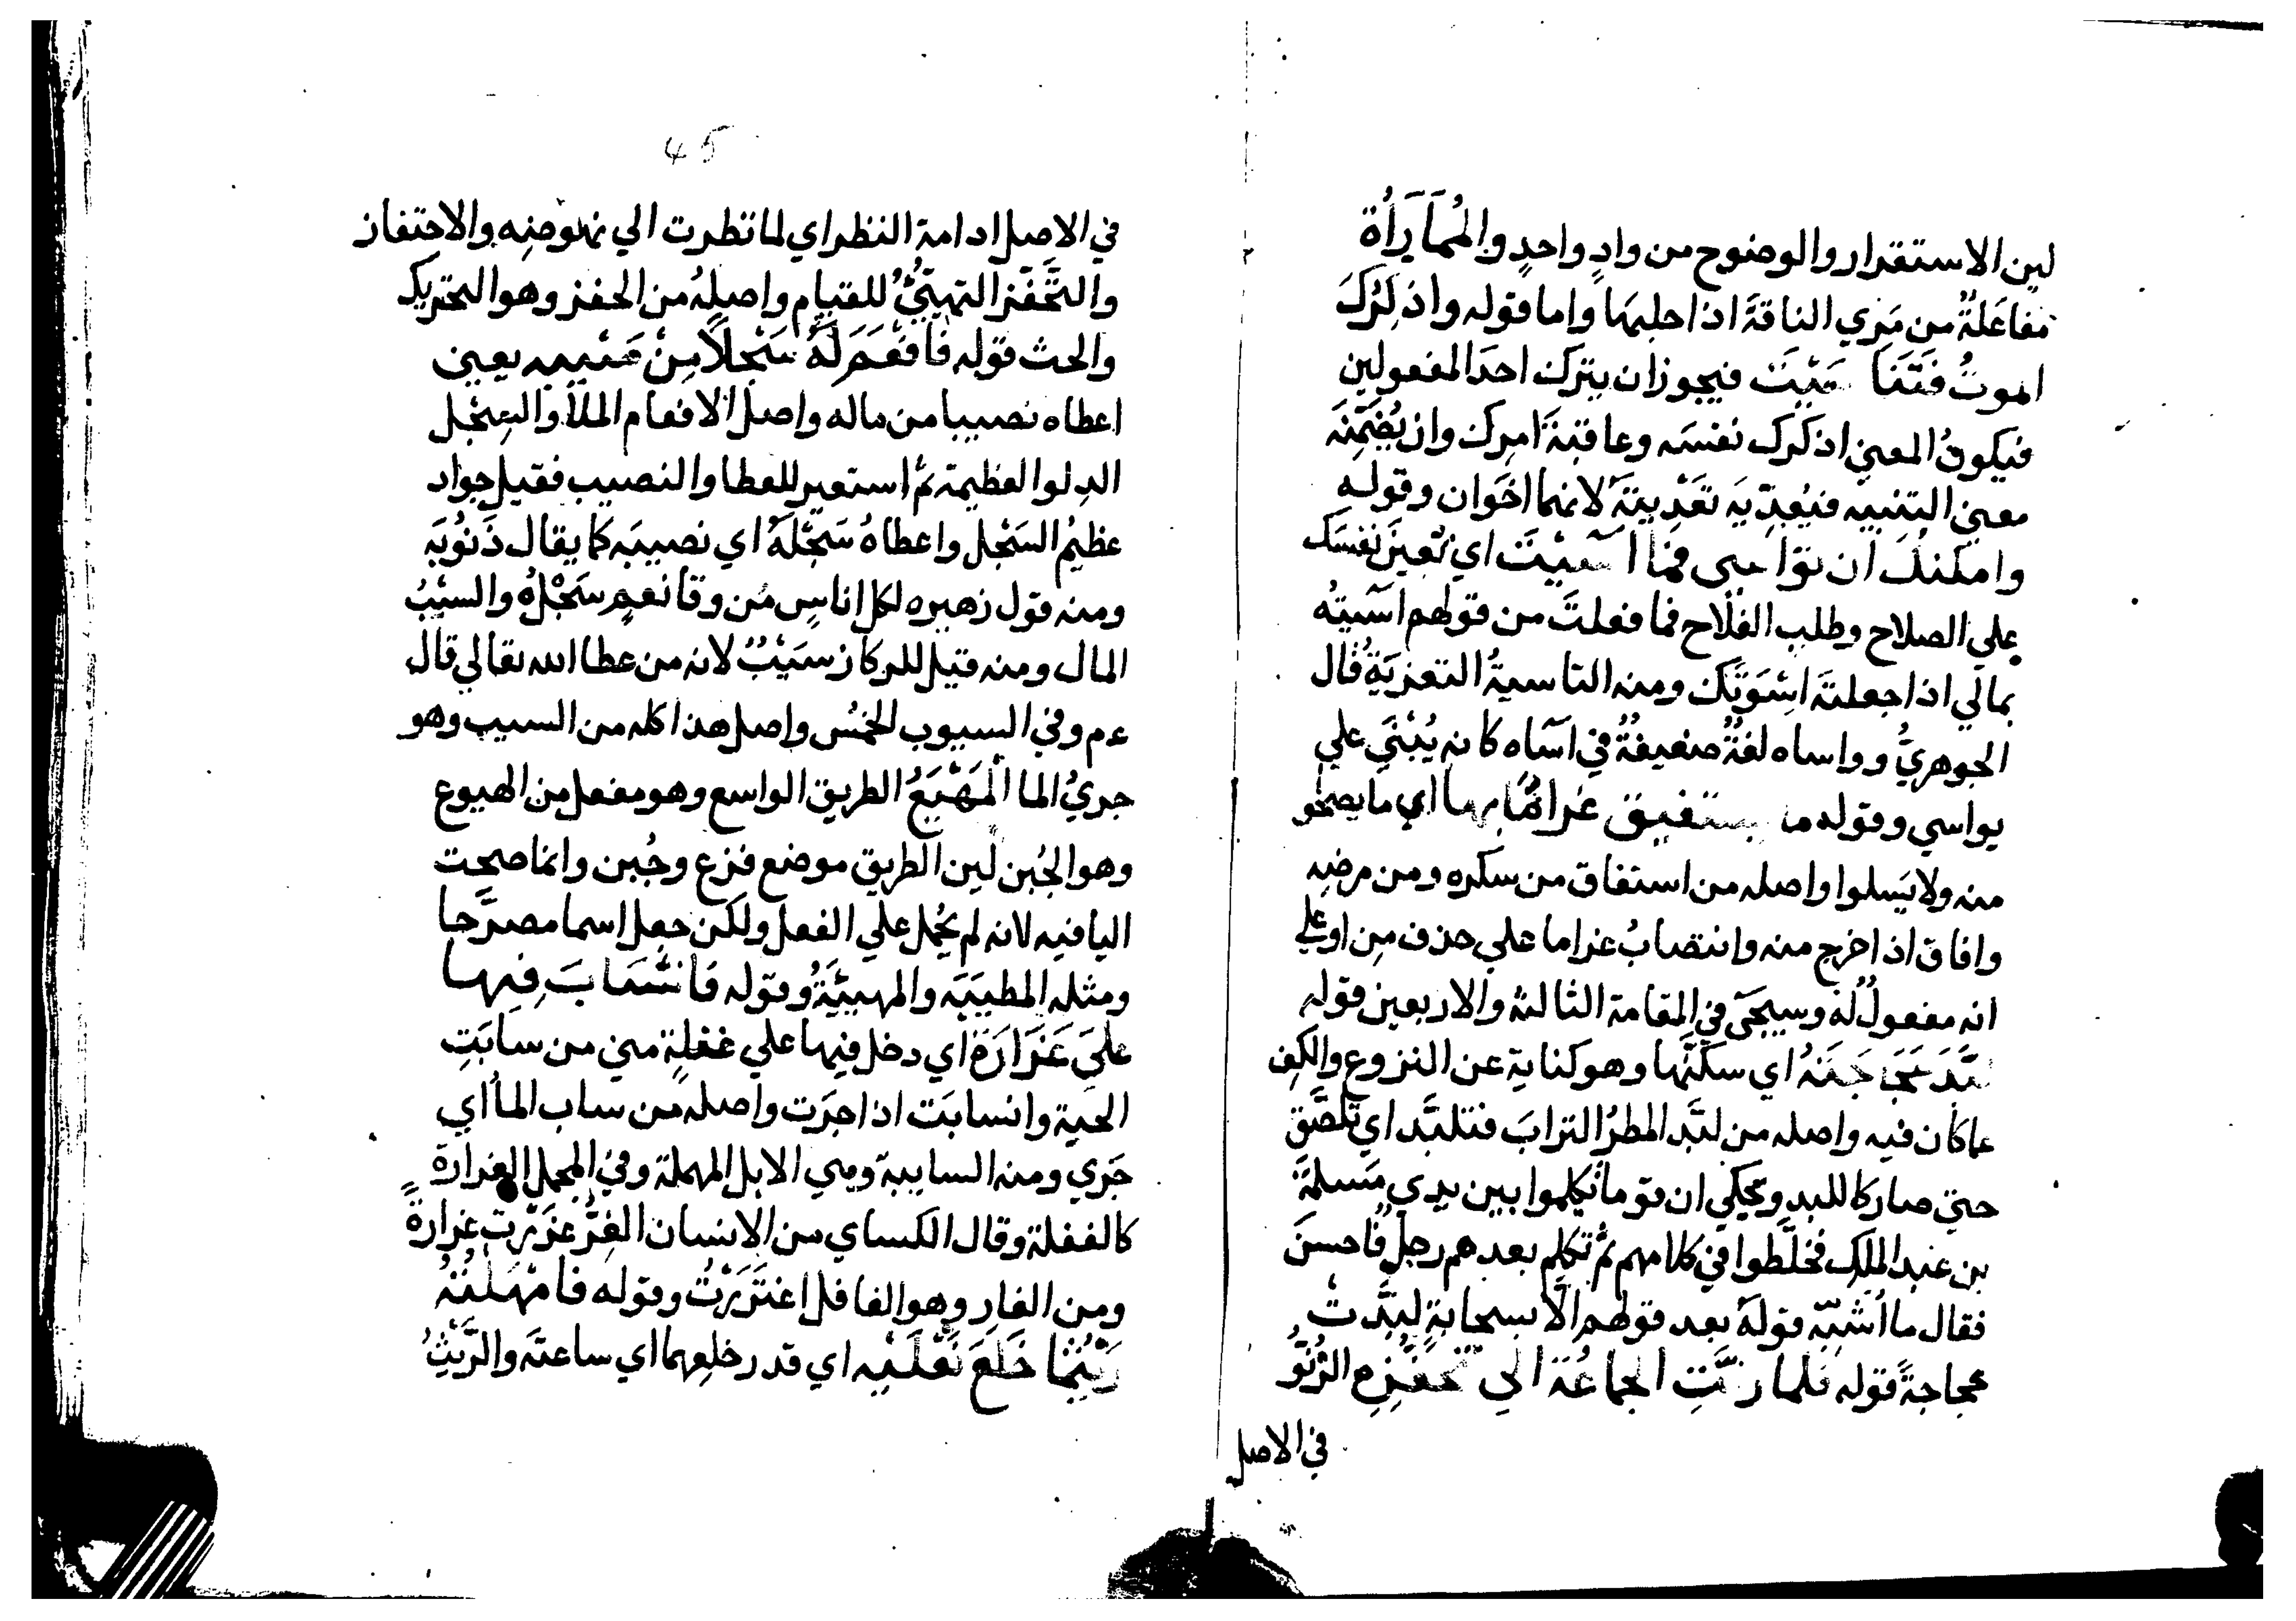 لين الاستقرار والوضوح من وادٍ واحدٍ والمُمَاراة
مفاعَلةٌ من مَري الناقةَ اذا حلبها واما قوله واذكرك
الموتُ فَتَنَاسَيْتَ فيجوز ان يترك احدَ المفعولين
فيكونُ المعني اذكرك نفسَه وعاقبةَ امرك وان يُضَمِّنَه
معني التنبيه فيُعدِّيَه تَعْدِيتَه لانهما اخَوان وقوله
وامكنكَ ان تؤاسي فما آسَيْتَ اي تُعِينَ نفسَك
علي الصلاح وطلب الفلاح فما فعلتَ من قولهم آسَيتُه
بمالي اذا جعلتَه اسْوَتَك ومنه التاسيةُ التعزيَةُ قال
الجوهريُّ وواساه لغةٌ ضعيفةٌ في آسَاه كانه يُبْنَي علي
يواسي وقوله ما يستفيق غرامًا بها اي ما يصحو
منه ولا يَسلوا واصله من استفاق من سكره ومن مرضه
وافاق اذا خرج منه وانتصابُ غراما علي حذف مِن او علي
انه مفعولٌ له وسيجَيَ في المقامة الثالثة والاربعين قوله
لَبَّدَ عَجَاجَتَهُ اي سكَّنها وهو كناية عن النزوع والكف
عما كان فيه واصله من لبَّد المطرُ الترابَ فتلبَّد اي تلصَّق
حتي صار كاللبد ويحكي ان قوما تكلموا بين يدي مَسلمةَ
بن عبد الملك فخلَّطوا في كلامهم ثم تكلم بعدهم رجلٌ فاحسنَ
فقال ما اُشبّه قولَهُ بعد قولهم الَّا بسحابةٍ لبَّدتْ
عجاجةً قوله فلما رنَتِ الجماعَة الي تحفُّزه الرُّنُوُّ
في الاصل
في الاصل ادامة النظر اي لما نظرت الي نهوضه والاحتفاز
والتَّحَفّز التهيّئُ للقيام واصله من الحفز وهو التحريك
والحث قوله فَافْعَمَ لَهُ سَجْلًا مِنْ سَيْبِه يعني
اعطاه نصيبا من ماله واصل الافعام الملأ والسَجْل
الدلو العظيمة ثم استعير للعطا والنصيب فقيل جواد
عظيم السَجْل واعطاهُ سَجْلَهُ اي نصيبَه كما يقال ذَنُوبَه
ومنه قول زهيره لكل اناسٍ من وقانعهم سَجْلُهُ والسَيْبُ
المال ومنه قيل للركاز سَيْبٌ لانه من عطا الله تعالي قال
ءم وفي السيوب الخمُس واصل هذا كله من السيب وهو
جريُ الما المَهْيَعُ الطريق الواسع وهو مفعل من الهيوع
وهو الجُبن لين الطريق موضع فزع وجُبن وانما صحت
اليا فيه لانه لم يُحمل علي الفعل ولكن جعل اسما مصرَّحا
ومثله المطيَبَه والمهيئَةُ وقوله فَانْسَابَ فِيها
عَلَي غَرَارَة اي دخل فيها علي غفلةٍ مني من سابَتِ
الحية وانسابَت اذا جرَت واصله من ساب الما أي
جَري ومنه السايبة وهي الابل المهملة وفي المجمل الغرارة
كالغفلة وقال الكساي من الانسان الغِرُّ غرَرْت غرارةً
ومن الغار وهو الغافل اغتَرَرْتُ وقوله فَامْهَلْتُهُ
رَيْثَمَا خَلَعَ نَعْلَيْه اي قدر خلعهما اي ساعتَه والرَّيْثُ